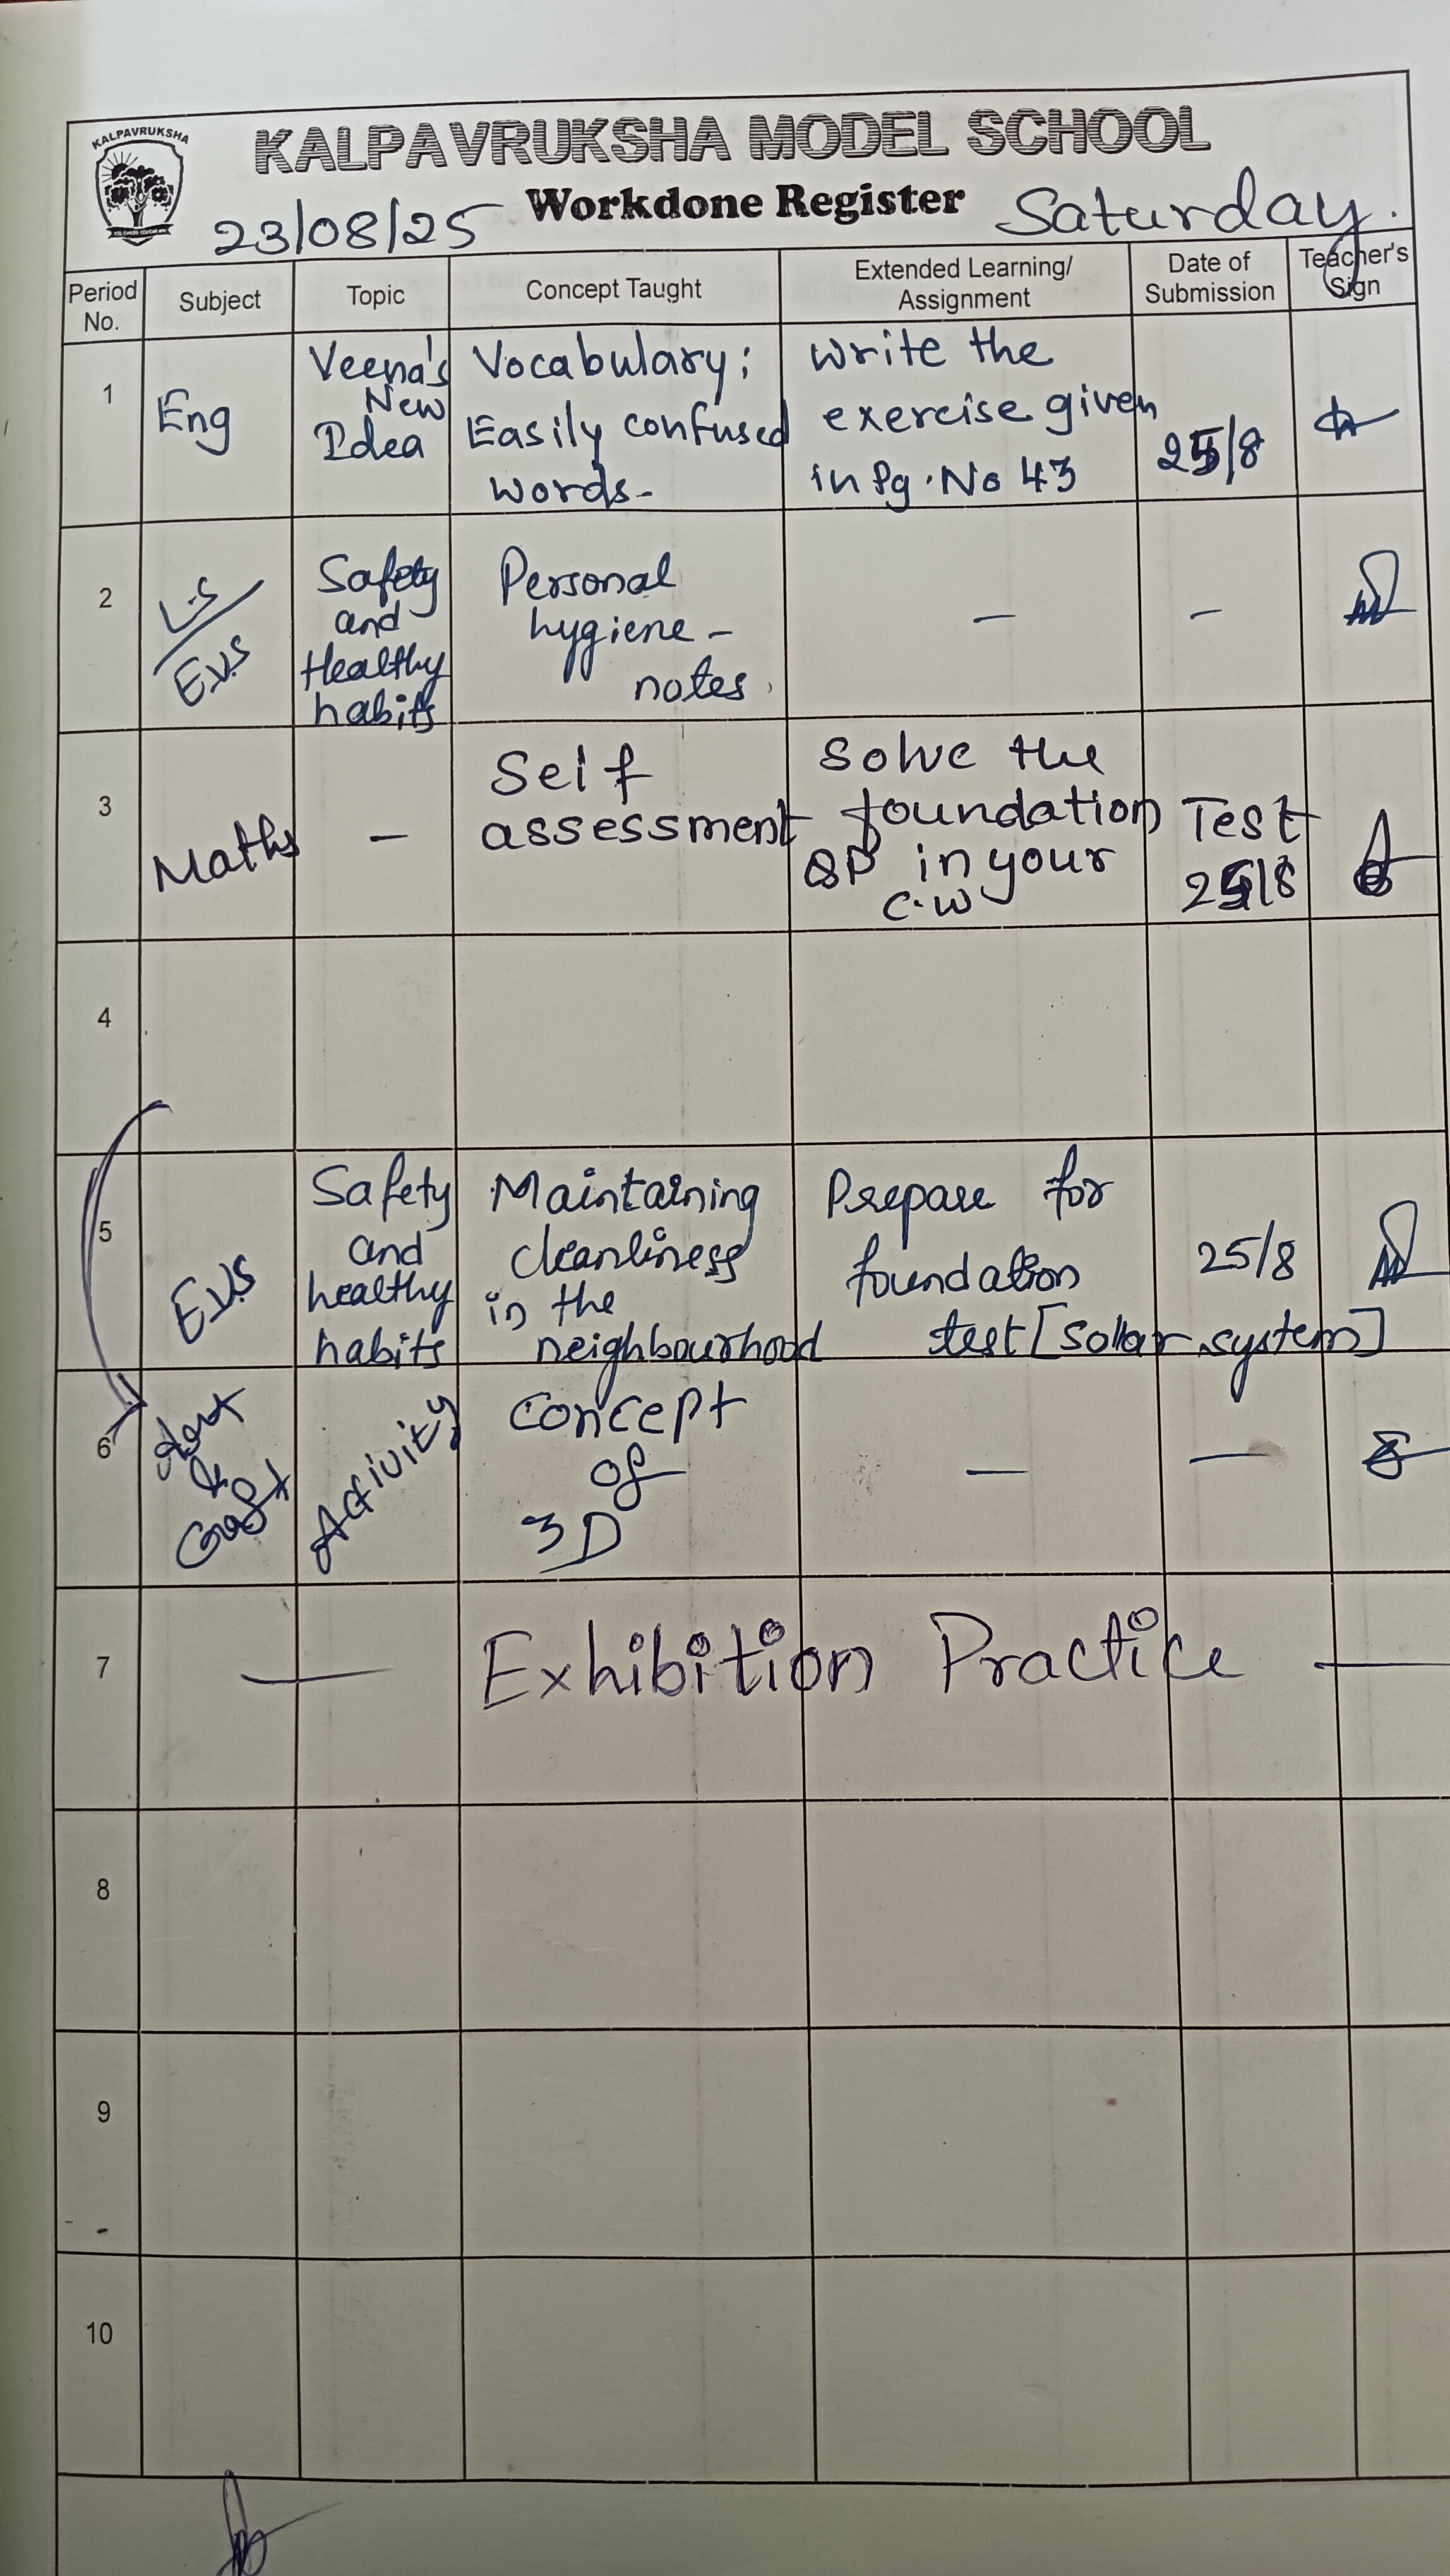 KALPAVRUKSHA
KALPAVRUKSHA MODEL SCHOOL
Workdone Register
23/08/25
Saturday.
Period No.
Subject
Topic
Concept Taught
Extended Learning/
Assignment
Date of
Submission
Teacher's
Sign
1
Eng
Veena's
New
Idea
Vocabulary;
Easily confused
words-
Write the
exercise given
in Pg. No 43
25/8
2
L.S
E.V.S
Safety
and
Healthy
habits
Personal
hygiene -
notes.
-
-
3
Maths
-
Self
assessment
Solve the
foundation
QP in your
C.W
Test
25/8
4
5
E.V.S
Safety
and
healthy
habits
Maintaining
cleanliness
in the
neighbourhood
Prepare for
foundation
test [Sollar system]
25/8
6
Art
&
Craft
Activity
Concept
of
3D
-
-
7
- Exhibition Practice -
8
9
10